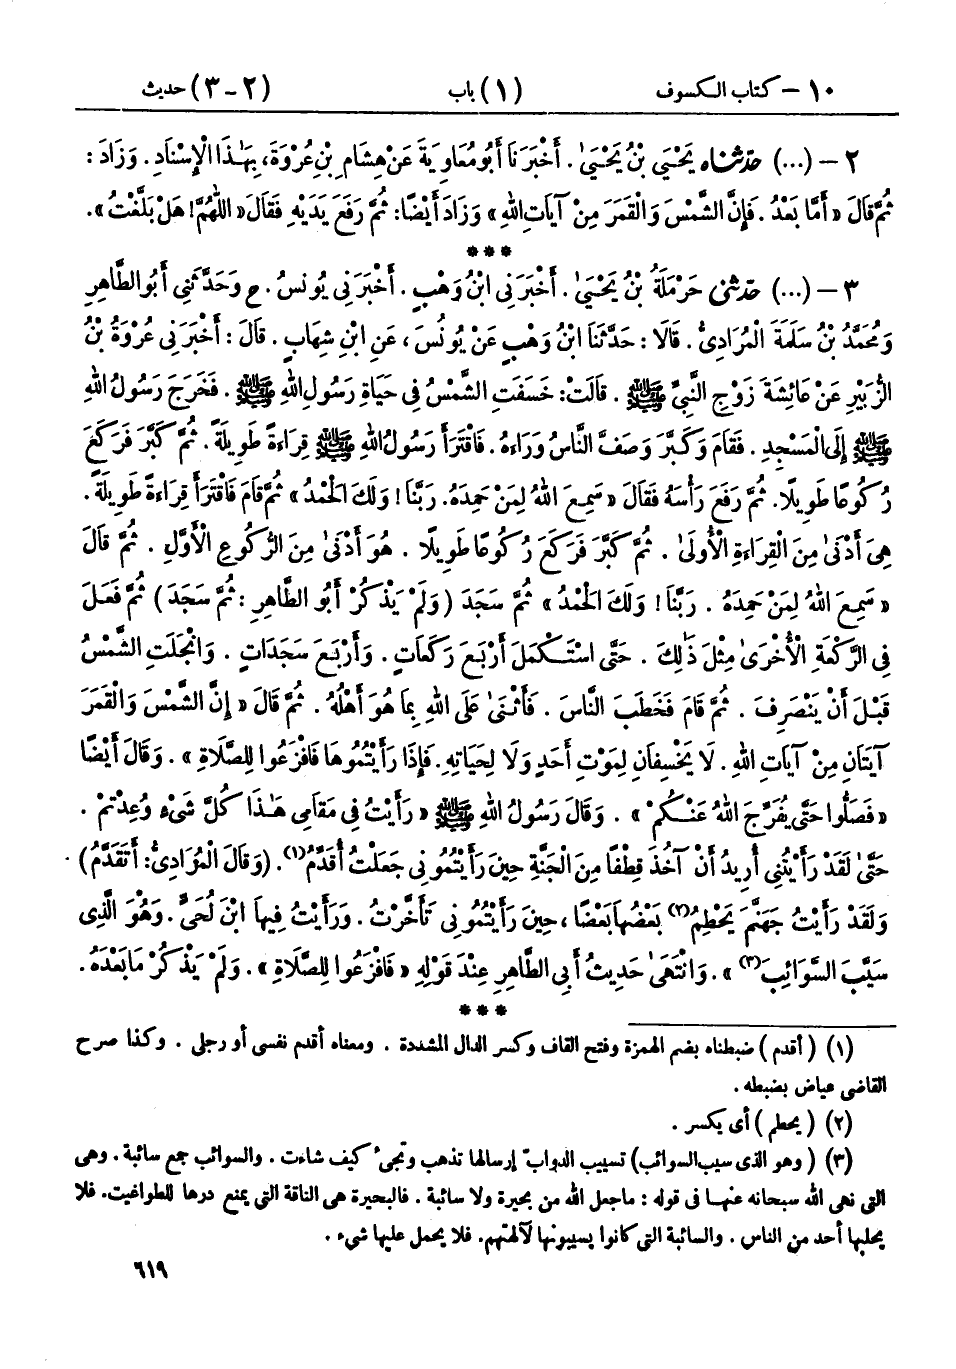 ١٠ – كتاب الكسوف (١) باب (٢ – ٣) حديث
٢ – (...) حدثناه يَحْيَى بْنُ يَحْيَىٰ. أَخْبَرَنَا أَبُو مُعَاوِيَةَ عَنْ هِشَامِ بْنِ عُرْوَةَ، بِهَٰذَا الْإِسْنَادِ. وَزَادَ:
ثُمَّ قَالَ «أَمَّا بَعْدُ. فَإِنَّ الشَّمْسَ وَالْقَمَرَ مِنْ آيَاتِ اللهِ» وَزَادَ أَيْضًا: ثُمَّ رَفَعَ يَدَيْهِ فَقَالَ «اللَّهُمَّ! هَلْ بَلَّغْتُ».
***
٣ – (...) حدثنى حَرْمَلَةُ بْنُ يَحْيَىٰ. أَخْبَرَنِي ابْنُ وَهْبٍ. أَخْبَرَنِي يُونُسُ. ح وَحَدَّثَنِي أَبُو الطَّاهِرِ
وَمُحَمَّدُ بْنُ سَلَمَةَ الْمُرَادِىُّ. قَالَا: حَدَّثَنَا ابْنُ وَهْبٍ عَنْ يُونُسَ، عَنِ ابْنِ شِهَابٍ. قَالَ: أَخْبَرَنِي عُرْوَةُ بْنُ
الزُّبَيْرِ عَنْ عَائِشَةَ زَوْجِ النَّبِيِّ ﷺ. قَالَتْ: خَسَفَتِ الشَّمْسُ فِي حَيَاةِ رَسُولِ اللهِ ﷺ. فَخَرَجَ رَسُولُ اللهِ
ﷺ إِلَى الْمَسْجِدِ. فَقَامَ وَكَبَّرَ وَصَفَّ النَّاسُ وَرَاءَهُ. فَاقْتَرَأَ رَسُولُ اللهِ ﷺ قِرَاءَةً طَوِيلَةً. ثُمَّ كَبَّرَ فَرَكَعَ
رُكُوعًا طَوِيلًا. ثُمَّ رَفَعَ رَأْسَهُ فَقَالَ «سَمِعَ اللهُ لِمَنْ حَمِدَهُ. رَبَّنَا! وَلَكَ الْحَمْدُ» ثُمَّ قَامَ فَاقْتَرَأَ قِرَاءَةً طَوِيلَةً.
هِىَ أَدْنَىٰ مِنَ الْقِرَاءَةِ الْأُولَىٰ. ثُمَّ كَبَّرَ فَرَكَعَ رُكُوعًا طَوِيلًا. هُوَ أَدْنَىٰ مِنَ الرُّكُوعِ الْأَوَّلِ. ثُمَّ قَالَ
«سَمِعَ اللهُ لِمَنْ حَمِدَهُ. رَبَّنَا! وَلَكَ الْحَمْدُ» ثُمَّ سَجَدَ (وَلَمْ يَذْكُرْ أَبُو الطَّاهِرِ: ثُمَّ سَجَدَ) ثُمَّ فَعَلَ
فِي الرَّكْعَةِ الْأُخْرَىٰ مِثْلَ ذَٰلِكَ. حَتَّى اسْتَكْمَلَ أَرْبَعَ رَكَعَاتٍ. وَأَرْبَعَ سَجَدَاتٍ. وَانْجَلَتِ الشَّمْسُ
قَبْلَ أَنْ يَنْصَرِفَ. ثُمَّ قَامَ فَخَطَبَ النَّاسَ. فَأَثْنَىٰ عَلَى اللهِ بِمَا هُوَ أَهْلُهُ. ثُمَّ قَالَ «إِنَّ الشَّمْسَ وَالْقَمَرَ
آيَتَانِ مِنْ آيَاتِ اللهِ. لَا يَخْسِفَانِ لِمَوْتِ أَحَدٍ وَلَا لِحَيَاتِهِ. فَإِذَا رَأَيْتُمُوهَا فَافْزَعُوا لِلصَّلَاةِ». وَقَالَ أَيْضًا
«فَصَلُّوا حَتَّى يُفَرِّجَ اللهُ عَنْكُمْ». وَقَالَ رَسُولُ اللهِ ﷺ «رَأَيْتُ فِي مَقَامِي هَٰذَا كُلَّ شَيْءٍ وُعِدْتُمْ.
حَتَّىٰ لَقَدْ رَأَيْتُنِي أُرِيدُ أَنْ آخُذَ قِطْفًا مِنَ الْجَنَّةِ حِينَ رَأَيْتُمُونِي جَعَلْتُ أُقَدِّمُ(١). (وَقَالَ الْمُرَادِىُّ: أَتَقَدَّمُ)
وَلَقَدْ رَأَيْتُ جَهَنَّمَ يَحْطِمُ(٢) بَعْضُهَا بَعْضًا، حِينَ رَأَيْتُمُونِي تَأَخَّرْتُ. وَرَأَيْتُ فِيهَا ابْنَ لُحَيٍّ. وَهُوَ الَّذِى
سَيَّبَ السَّوَائِبَ(٣)». وَانْتَهَىٰ حَدِيثُ أَبِي الطَّاهِرِ عِنْدَ قَوْلِهِ «فَافْزَعُوا لِلصَّلَاةِ». وَلَمْ يَذْكُرْ مَا بَعْدَهُ.
***
(١) (أقدم) ضبطناه بضم الهمزة وفتح القاف وكسر الدال المشددة. ومعناه أقدم نفسى أو رجلى. وكذا صرح
القاضى عياض بضبطه.
(٢) (يحطم) أى يكسر.
(٣) (وهو الذى سيب السوائب) تسييب الدوابّ إرسالها تذهب وتجىء كيف شاءت. والسوائب جمع سائبة. وهى
التى نهى الله سبحانه عنها فى قوله: ماجعل الله من بحيرة ولا سائبة. فالبحيرة هى الناقة التى يمنع درها للطواغيت. فلا
يحلبها أحد من الناس. والسائبة التى كانوا يسيبونها لآلهتهم. فلا يحمل عليها شىء.
٦١٩